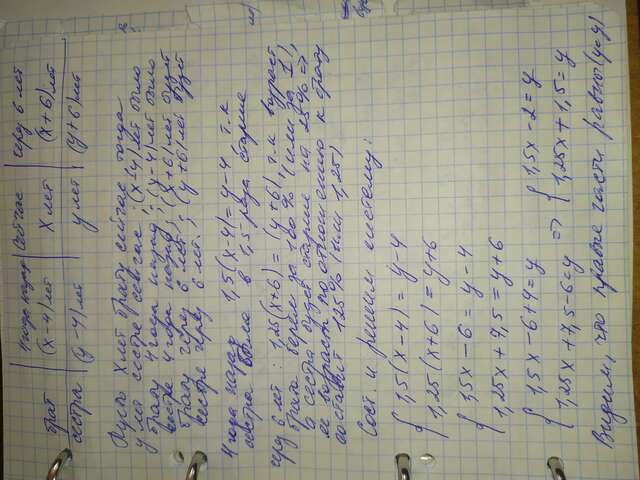 брат | 4 года назад | Сейчас | через 6 лет
(x-4) лет | x лет | (x+6) лет
сестра | (y-4) лет | y лет | (y+6) лет
Пусть x лет брату сейчас тогда
y лет сестре сейчас; (x-4) лет было
брату 4 года назад; (y-4) лет было
сестре 4 года назад; (x+6) лет будет
брату через 6 лет; (y+6) лет будет
сестре через 6 лет.
4 года назад 1,5(x-4) = y-4 т.к
сестра была в 1,5 раза старше
через 6 лет: 1,25(x+6) = (y+6), т.к возраст
брата берём за 100% (или за 1),
а сестра будет старше на 25% =>
её возраст по отношению к брату
составит 125% (или 1,25)
Сост и решим систему:
{ 1,5(x-4) = y-4
{ 1,25(x+6) = y+6
{ 1,5x-6 = y-4
{ 1,25x+7,5 = y+6
{ 1,5x-6+4=y
{ 1,25x+7,5-6=y
=> { 1,5x-2=y
{ 1,25x+1,5=y
Видим, что правые части равны (y=y)